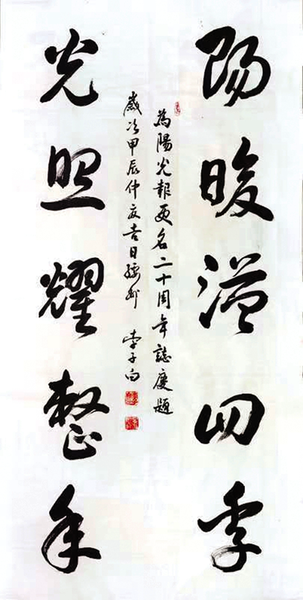 陽暖溢四季
為陽光報更名二十周年誌慶題
歲次甲辰仲夏吉日 李子
光照耀整年